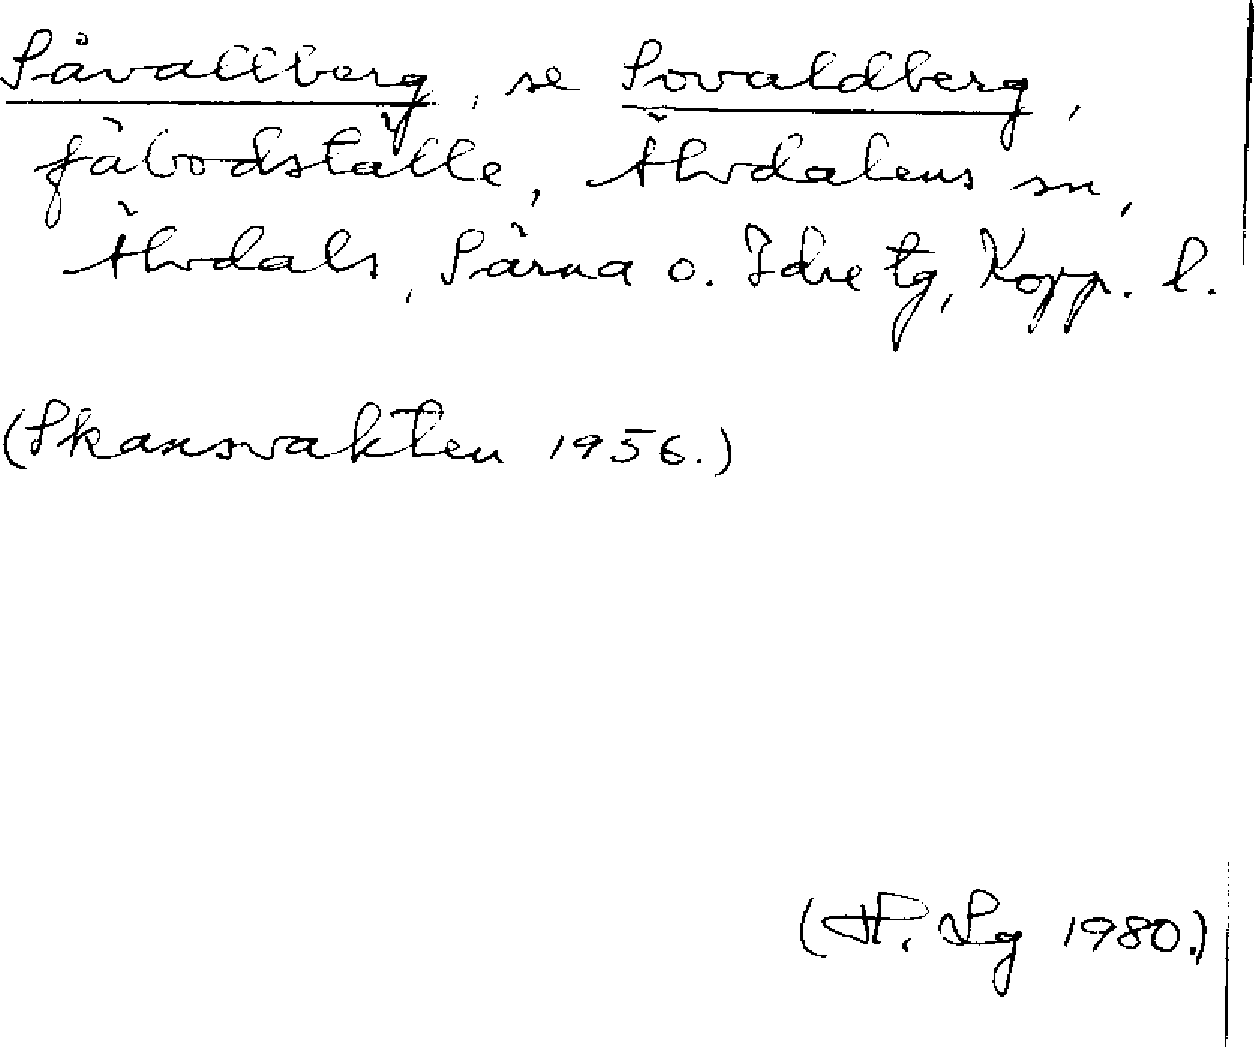 Såvallberg, se Sovaldberg,
fäbodställe, Älvdalens sn,
Älvdals, Särna o. Idre tg, Kopp. l.
(Skansvakten 1956.)
(H. Lg 1980.)